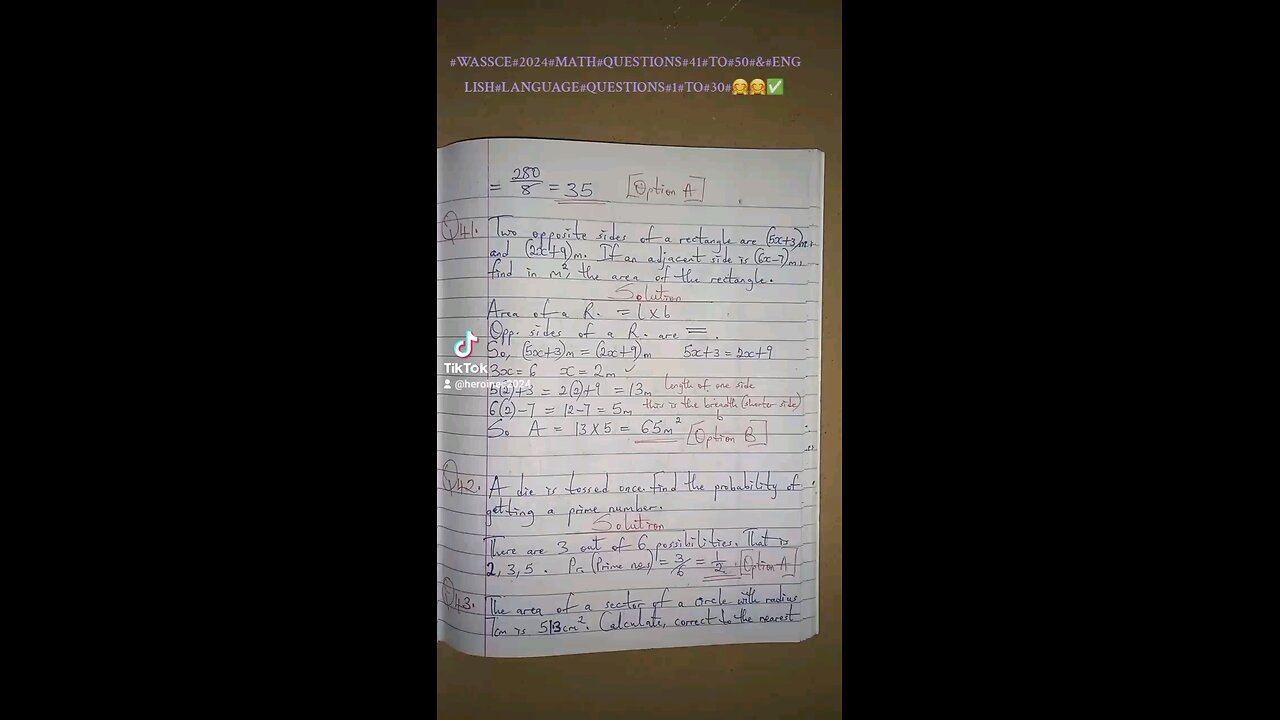 #WASSCE#2024#MATH#QUESTIONS#41#TO#50#&#ENG
LISH#LANGUAGE#QUESTIONS#1#TO#30#🤗🤗✅
= 280/8 = 35 [Option A]
Q41. Two opposite sides of a rectangle are (5x+3)m
and (2x+9)m. If an adjacent side is (6x-7)m,
find in m², the area of the rectangle.
Solution
Area of a R. = l x b
Opp. sides of a R. are =.
So, (5x+3)m = (2x+9)m 5x+3 = 2x+9
3x = 6 x = 2m ✓
5(2)+3 = 2(2)+9 = 13m length of one side
6(2)-7 = 12-7 = 5m this is the breadth (shorter side)
b
So A = 13 X 5 = 65m² [Option B]
TikTok
@heroinec2024
Q42. A die is tossed once. Find the probability of
getting a prime number.
Solution
There are 3 out of 6 possibilities. That is
2, 3, 5. Pr (Prime nos) = 3/6 = 1/2. [Option A]
Q43. The area of a sector of a circle with radius
7cm is 513cm². Calculate, correct to the nearest